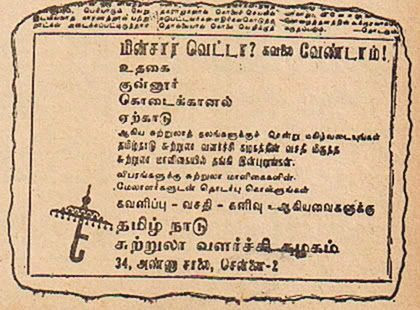 மின்சார வெட்டா? கவலை வேண்டாம்!
உதகை
குன்னூர்
கொடைக்கானல்
ஏற்காடு
ஆகிய சுற்றுலாத் தலங்களுக்குச் சென்று மகிழ்வடையுங்கள்
தமிழ்நாடு சுற்றுலா வளர்ச்சி கழகத்தின் வசதி மிகுந்த
சுற்றுலா மாளிகையில் தங்கி இன்புறுங்கள்.
விபரங்களுக்கு சுற்றுலா மாளிகைகளின்
மேலாளர்களுடன் தொடர்பு கொள்ளுங்கள்
கவனிப்பு - வசதி - கனிவு ஆகியவைகளுக்கு
தமிழ் நாடு
சுற்றுலா வளர்ச்சி கழகம்
34, அண்ணா சாலை, சென்னை-2